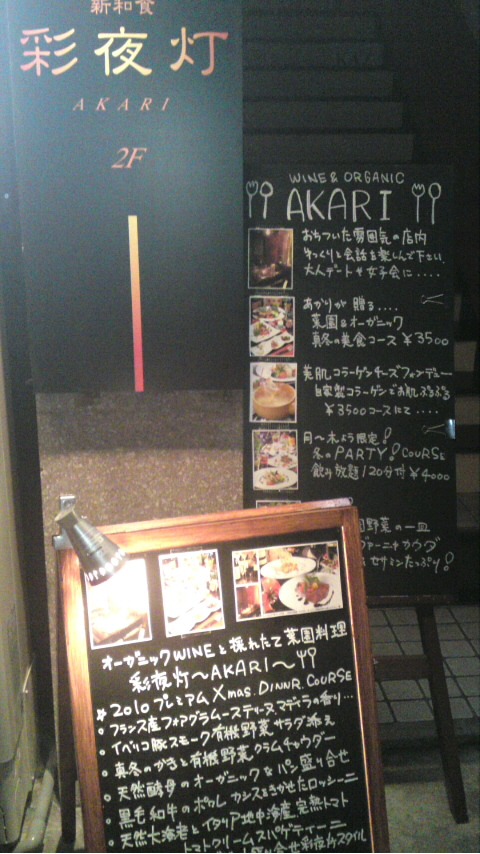 新和食
彩夜灯
AKARI
2F
WINE & ORGANIC
AKARI
おちついた雰囲気の店内
ゆっくりと会話を楽しんで下さい
大人デートや女子会に....
あかりが贈る....
菜園&オーガニック
真冬の美食コース ¥3500
美肌コラーゲンチーズフォンデュー
自家製コラーゲンでお肌ぷるぷる
¥3500コースにて....
月〜木よう限定!
冬のPARTY!COURSE
飲み放題120分付¥4000
野菜の一皿
ァーニャカウダ
セサミンたっぷり!
オーガニックWINEと採れたて菜園料理
彩夜灯〜AKARI〜
☆2010プレミアムXmas.DINNR.COURSE
・フランス産フォアグラムースティーヌマディラの香り...
・イベリコ豚スモーク有機野菜サラダ添え
・真冬のかきと有機野菜クラムチャウダー
・天然酵母のオーガニック&パン盛り合せ
・黒毛和牛のポワレ カシスをきかせたロッシーニ
・天然大海老とイタリア地中海産完熟トマト
トマトクリームスパゲティーニ
盛り合せ彩夜灯スタイル